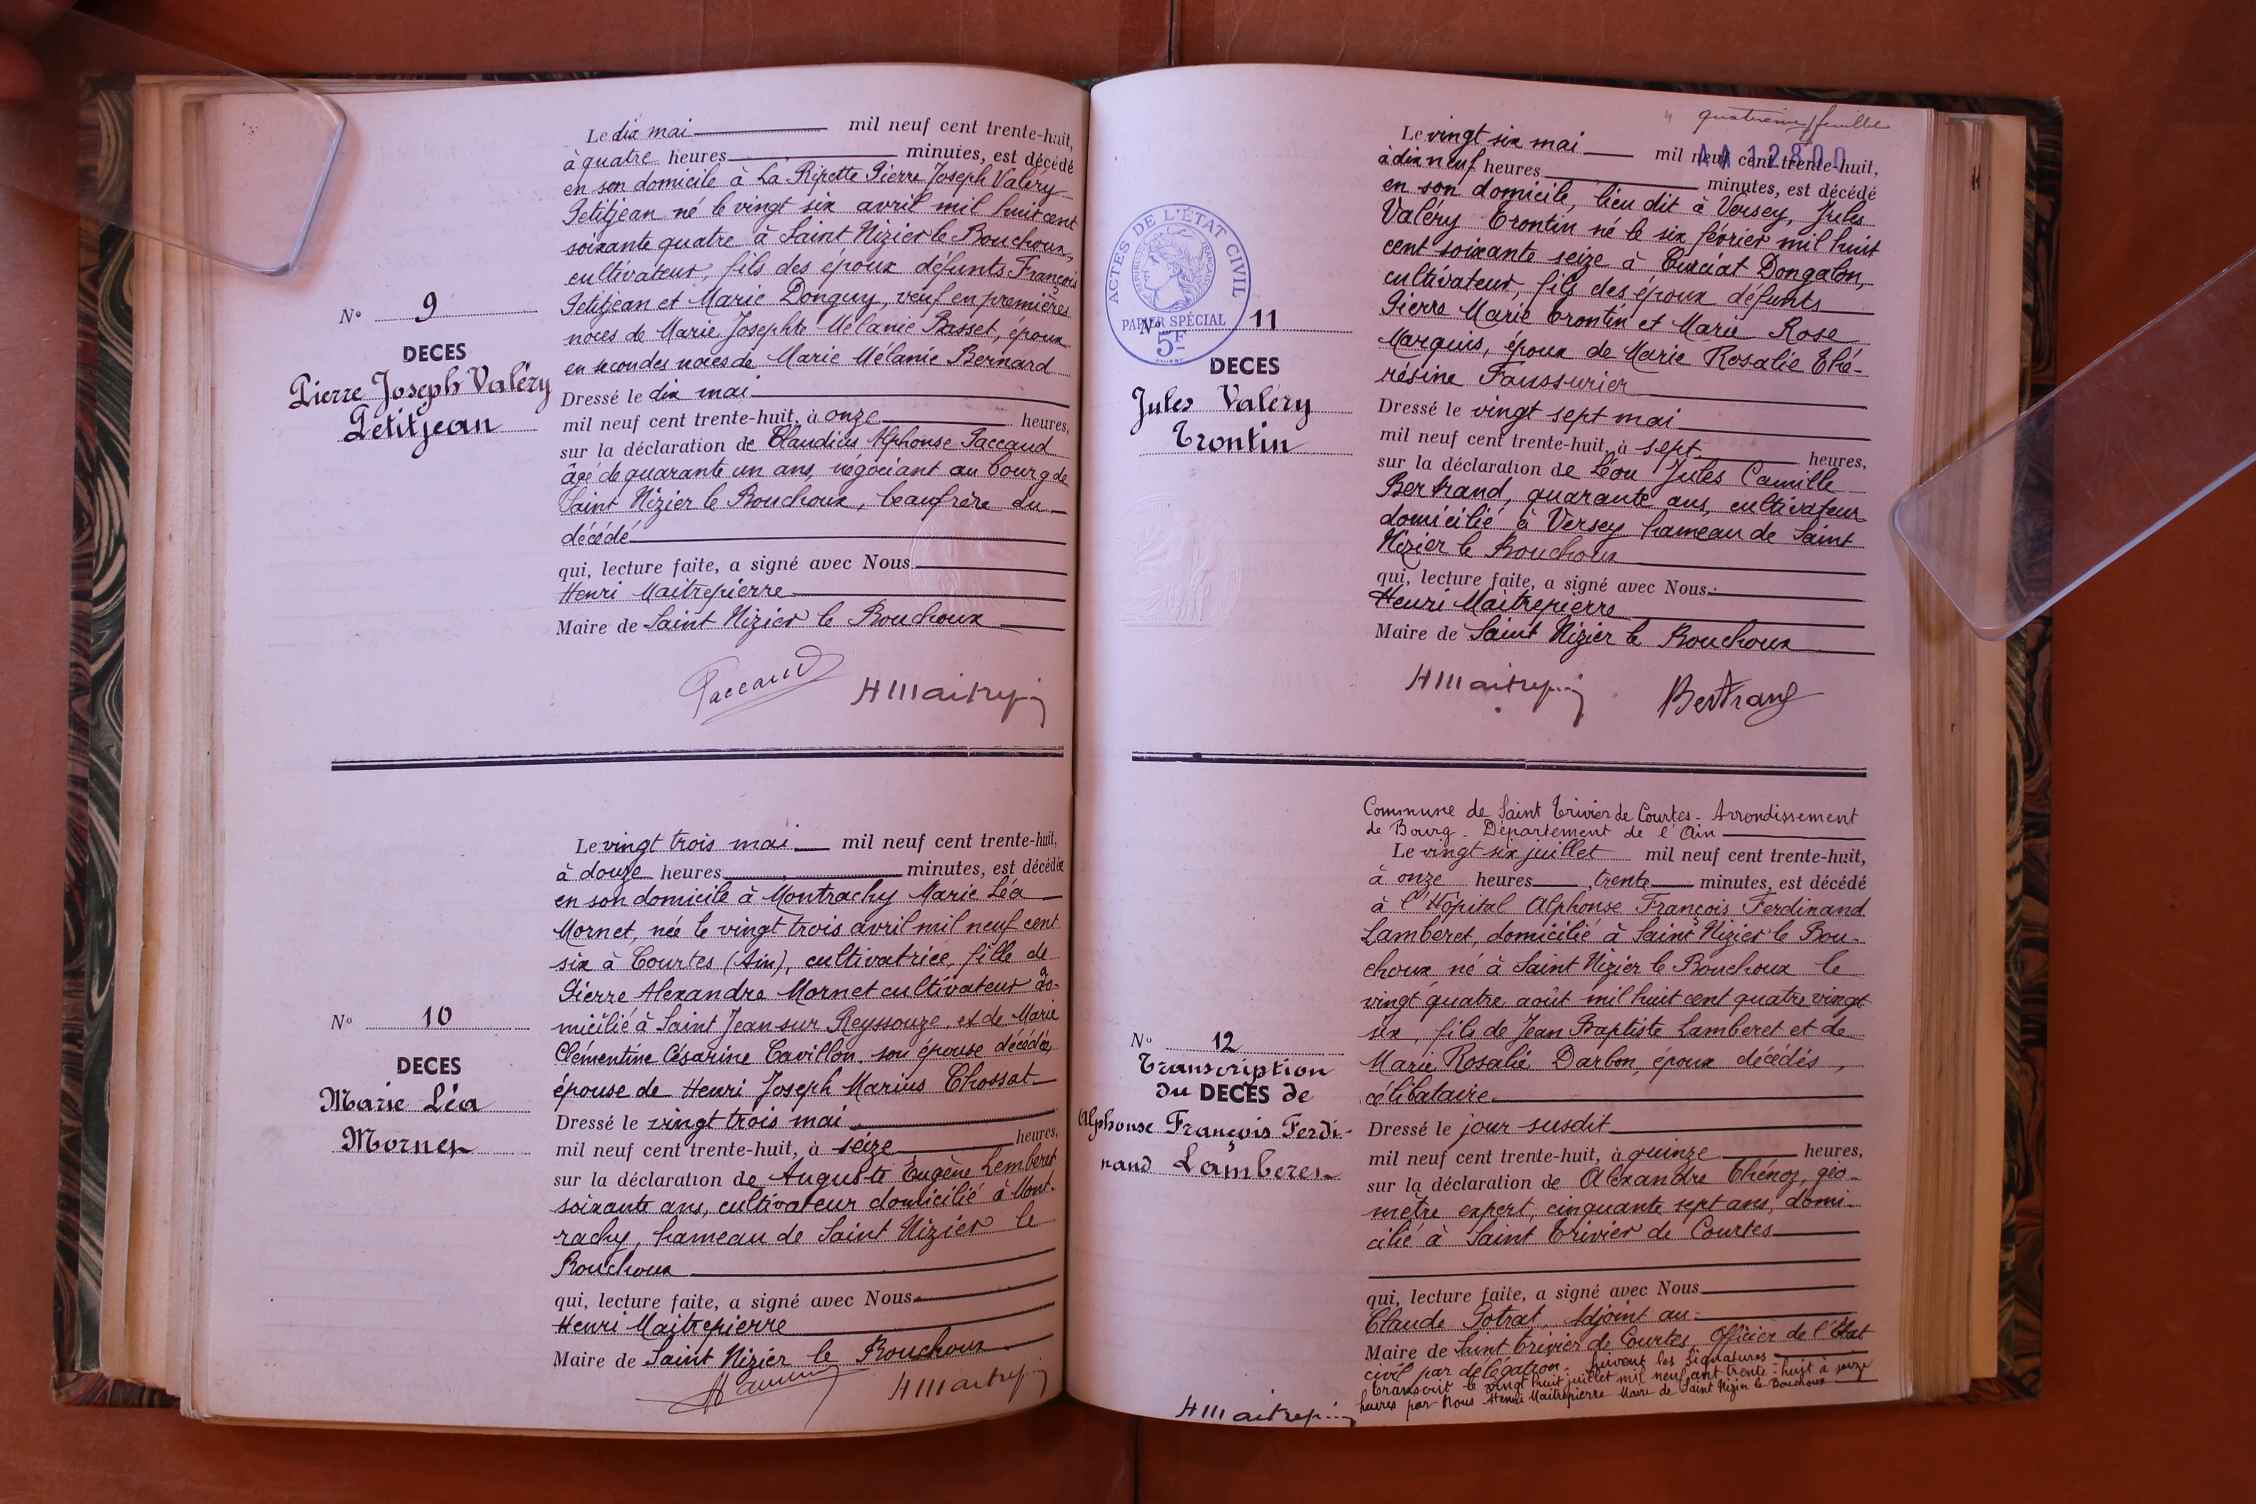 Le dix mai mil neuf cent trente-huit,
à quatre heures minutes, est décédé
en son domicile à La Ripette Pierre Joseph Valéry
Petitjean né le vingt six avril mil huit cent
soixante quatre à Saint Nizier le Bouchoux,
cultivateur, fils des époux défunts François
Petitjean et Marie Donguy, veuf en premières
noces de Marie Josephte Mélanie Basset, époux
en secondes noces de Marie Mélanie Bernard
N° 9
DECES
Pierre Joseph Valéry
Petitjean
Dressé le dix mai
mil neuf cent trente-huit, à onze heures,
sur la déclaration de Claudius Alphonse Paccaud
âgé de quarante un ans, négociant au bourg de
Saint Nizier le Bouchoux, beaufrère du
décédé
qui, lecture faite, a signé avec Nous
Henri Maitrepierre
Maire de Saint Nizier le Bouchoux
Paccaud HMaitrepi
Le vingt trois mai mil neuf cent trente-huit,
à douze heures minutes, est décédée
en son domicile à Montrachy Marie Léa
Mornet, née le vingt trois avril mil neuf cent
six à Courtes (Ain), cultivatrice, fille de
Pierre Alexandre Mornet cultivateur do-
micilié à Saint Jean sur Reyssouze et de Marie
Clémentine Césarine Cavillon son épouse décédée,
épouse de Henri Joseph Marius Chossat
N° 10
DECES
Marie Léa
Mornet
Dressé le vingt trois mai
mil neuf cent trente-huit, à seize heures,
sur la déclaration de Auguste Eugène Lemberet
soixante ans, cultivateur domicilié à Mont-
rachy, hameau de Saint Nizier le
Bouchoux
qui, lecture faite, a signé avec Nous
Henri Maitrepierre
Maire de Saint Nizier le Bouchoux
HMaitrepi
4 quatrième feuille
AA 12800
Le vingt six mai mil neuf cent trente-huit,
à dix neuf heures minutes, est décédé
en son domicile, lieu dit à Versey, Jules
Valéry Trontin né le six février mil huit
cent soixante seize à Curciat Dongalon,
cultivateur, fils des époux défunts
Pierre Marie Trontin et Marie Rose
Marquis, époux de Marie Rosalie Thé-
résine Faussurier
ACTES DE L'ÉTAT CIVIL
RÉPUBLIQUE FRANÇAISE
PAPIER SPÉCIAL
5F
N° 11
DECES
Jules Valéry
Trontin
Dressé le vingt sept mai
mil neuf cent trente-huit, à sept heures,
sur la déclaration de Léon Jules Camille
Bertrand, quarante ans, cultivateur
domicilié à Versey hameau de Saint
Nizier le Bouchoux
qui, lecture faite, a signé avec Nous
Henri Maitrepierre
Maire de Saint Nizier le Bouchoux
HMaitrepi Bertrand
Commune de Saint Trivier de Courtes - Arrondissement
de Bourg - Département de l'Ain
Le vingt six juillet mil neuf cent trente-huit,
à onze heures trente minutes, est décédé
à l'Hôpital Alphonse François Ferdinand
Lamberet, domicilié à Saint Nizier le Bou-
choux né à Saint Nizier le Bouchoux le
vingt quatre août mil huit cent quatre vingt
six, fils de Jean Baptiste Lamberet et de
Marie Rosalie Darbon, époux décédés,
célibataire
N° 12
Transcription
du DECES de
Alphonse François Ferdi-
nand Lamberet
Dressé le jour susdit
mil neuf cent trente-huit, à quinze heures,
sur la déclaration de Alexandre Thénoz, géo-
mètre expert, cinquante sept ans, domi-
cilié à Saint Trivier de Courtes
qui, lecture faite, a signé avec Nous
Claude Potrat, Adjoint au
Maire de Saint Trivier de Courtes, Officier de l'Etat
civil par délégation. Suivent les signatures
Transcrit le vingt huit juillet mil neuf cent trente-huit à seize
heures par Nous Henri Maitrepierre Maire de Saint Nizier le Bouchoux
HMaitrepi